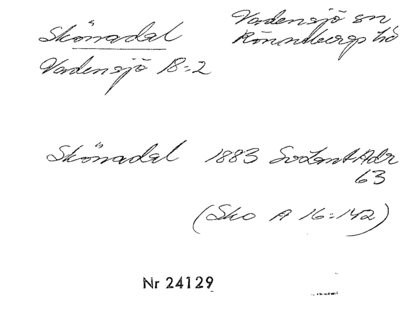 Skönadal
Vadensjö sn
Rönnebergs hd
Vadensjö 18:2
Skönadal 1883 SvLantAdr
63
(Sko A 16:142)
Nr 24129